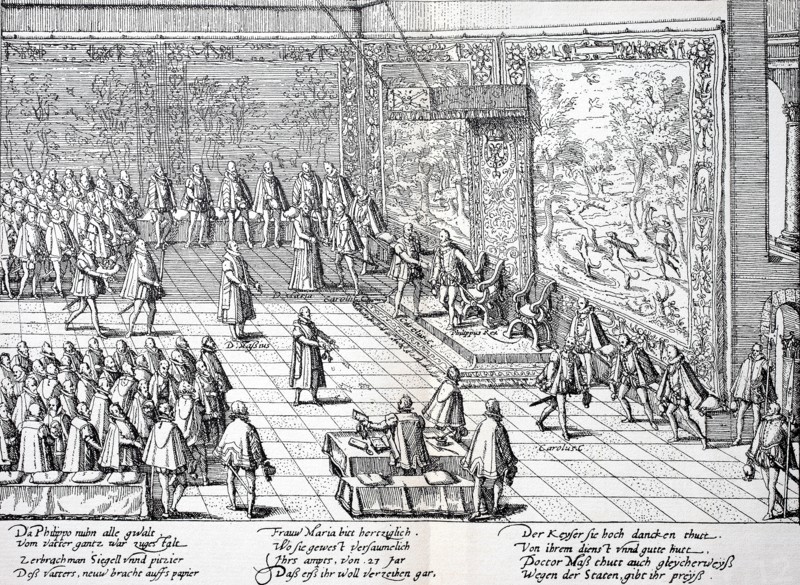 D. Maria
Carolus C.
Philippus Rex
D. Maßius
Carolus C.
Da Philippo nuhn alle gwalt
Vom vatter gantz war zugestalt
Zerbrach man Siegell vnnd pitzier
Deß vatters, neuw bracht auffs papier
Frauw Maria bitt hertziglich.
Wo sie gewest versaumelich
Jhrs ampts, von 27 Jar
Daß eß ihr woll verzeihen gar.
Der Keyser sie hoch dancken thutt.
Von ihrem dienst vnnd gutte hutt.
Doctor Maß thutt auch gleycherweyß
Wegen der Staten, gibt ihr preyß